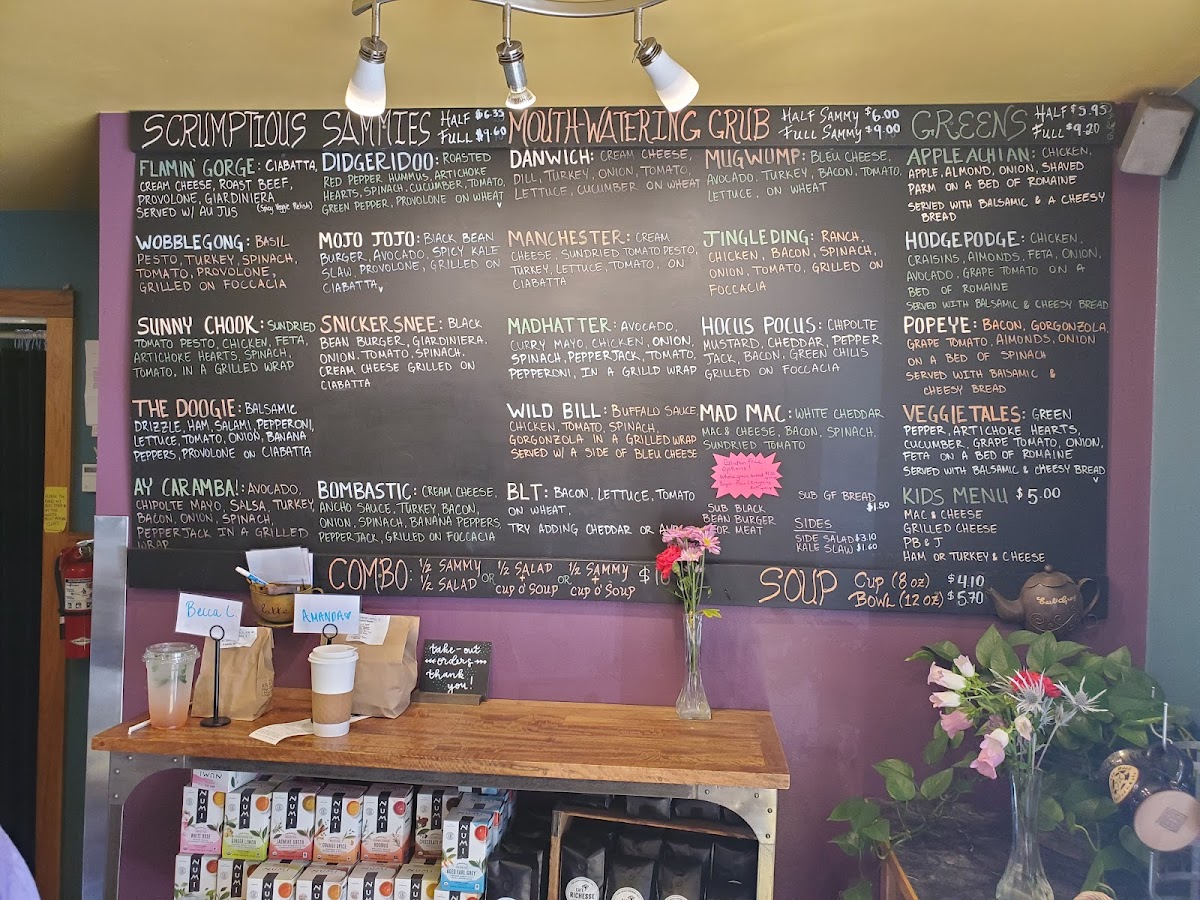 SCRUMPTIOUS SAMMIES HALF $6.35
FULL $9.60
FLAMIN' GORGE: CIABATTA,
CREAM CHEESE, ROAST BEEF,
PROVOLONE, GIARDINIERA
SERVED W/ AU JUS (Spicy Veggie Relish)
WOBBLEGONG: BASIL
PESTO, TURKEY, SPINACH,
TOMATO, PROVOLONE,
GRILLED ON FOCCACIA
SUNNY CHOOK: SUNDRIED
TOMATO PESTO, CHICKEN, FETA,
ARTICHOKE HEARTS, SPINACH,
TOMATO, IN A GRILLED WRAP
THE DOOGIE: BALSAMIC
DRIZZLE, HAM, SALAMI, PEPPERONI,
LETTUCE, TOMATO, ONION, BANANA
PEPPERS, PROVOLONE ON CIABATTA
AY CARAMBA!: AVOCADO,
CHIPOTLE MAYO, SALSA, TURKEY,
BACON, ONION, SPINACH,
PEPPERJACK IN A GRILLED
WRAP
DIDGERIDOO: ROASTED
RED PEPPER HUMMUS, ARTICHOKE
HEARTS, SPINACH, CUCUMBER, TOMATO,
GREEN PEPPER, PROVOLONE ON WHEAT
MOJO JOJO: BLACK BEAN
BURGER, AVOCADO, SPICY KALE
SLAW, PROVOLONE, GRILLED ON
CIABATTA
SNICKERSNEE: BLACK
BEAN BURGER, GIARDINIERA,
ONION, TOMATO, SPINACH,
CREAM CHEESE GRILLED ON
CIABATTA
BOMBASTIC: CREAM CHEESE,
ANCHO SAUCE, TURKEY, BACON,
ONION, SPINACH, BANANA PEPPERS,
PEPPERJACK, GRILLED ON FOCCACIA
MOUTH-WATERING GRUB HALF SAMMY $6.00
FULL SAMMY $9.00
DANWICH: CREAM CHEESE,
DILL, TURKEY, ONION, TOMATO,
LETTUCE, CUCUMBER ON WHEAT
MANCHESTER: CREAM
CHEESE, SUNDRIED TOMATO PESTO,
TURKEY, LETTUCE, TOMATO, ON
CIABATTA
MADHATTER: AVOCADO,
CURRY MAYO, CHICKEN, ONION,
SPINACH, PEPPERJACK, TOMATO,
PEPPERONI, IN A GRILLD WRAP
WILD BILL: BUFFALO SAUCE,
CHICKEN, TOMATO, SPINACH,
GORGONZOLA IN A GRILLED WRAP
SERVED W/ A SIDE OF BLEU CHEESE
BLT: BACON, LETTUCE, TOMATO
ON WHEAT.
TRY ADDING CHEDDAR OR
MUGWUMP: BLEU CHEESE,
AVOCADO, TURKEY, BACON, TOMATO,
LETTUCE, ON WHEAT
JINGLEDING: RANCH,
CHICKEN, BACON, SPINACH,
ONION, TOMATO, GRILLED ON
FOCCACIA
HOCUS POCUS: CHIPOLTE
MUSTARD, CHEDDAR, PEPPER
JACK, BACON, GREEN CHILIS
GRILLED ON FOCCACIA
MAD MAC: WHITE CHEDDAR
MAC & CHEESE, BACON, SPINACH,
SUNDRIED TOMATO
Gluten Free
Options!
SUB BLACK
BEAN BURGER
FOR MEAT
SUB GF BREAD
$1.50
SIDES
SIDE SALAD $3.10
KALE SLAW $1.60
GREENS HALF $5.95
FULL $9.20
APPLEACHIAN: CHICKEN,
APPLE, ALMOND, ONION, SHAVED
PARM ON A BED OF ROMAINE
SERVED WITH BALSAMIC & A CHEESY
BREAD
HODGEPODGE: CHICKEN,
CRAISINS, ALMONDS, FETA, ONION,
AVOCADO, GRAPE TOMATO ON A
BED OF ROMAINE
SERVED WITH BALSAMIC & CHEESY BREAD
POPEYE: BACON, GORGONZOLA,
GRAPE TOMATO, ALMONDS, ONION
ON A BED OF SPINACH
SERVED WITH BALSAMIC &
CHEESY BREAD
VEGGIETALES: GREEN
PEPPER, ARTICHOKE HEARTS,
CUCUMBER, GRAPE TOMATO, ONION,
FETA ON A BED OF ROMAINE
SERVED WITH BALSAMIC & CHEESY BREAD
KIDS MENU $5.00
MAC & CHEESE
GRILLED CHEESE
PB & J
HAM OR TURKEY & CHEESE
COMBO: ½ SAMMY ½ SALAD OR ½ SALAD + CUP O' SOUP OR ½ SAMMY + CUP O' SOUP
SOUP CUP (8 OZ) $4.10
BOWL (12 OZ) $5.70
Becca L.
AMANDA
take-out
orders
thank
you!
NUMI
WHITE ROSE
NUMI
GINGER LEMON
NUMI
JASMINE GREEN
NUMI
ORANGE SPICE
NUMI
ROOIBOS
NUMI
NUMI
AGED EARL GREY
NUMI
NUMI
NUMI
NUMI
NUMI
NUMI
RICHESSE